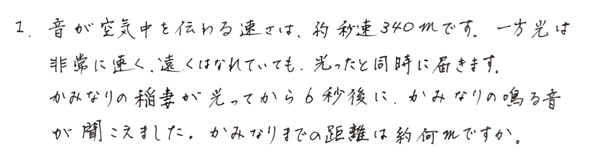 1. 音が空気中を伝わる速さは、約秒速340mです。一方光は
非常に速く、遠くはなれていても、光ったと同時に届きます。
かみなりの稲妻が光ってから6秒後に、かみなりの鳴る音
が聞こえました。かみなりまでの距離は約何mですか。